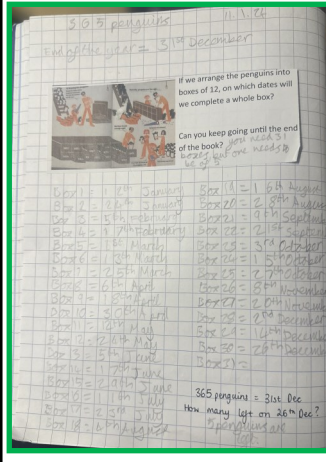 365 penguins
11.1.26
End of the year = 31st December
If we arrange the penguins into
boxes of 12, on which dates will
we complete a whole box?
Can you keep going until the end
of the book? you need 31
boxes but one needs to
be of 5
Box 1 = 12th January
Box 2 = 24th January
Box 3 = 5th February
Box 4 = 17th February
Box 5 = 1st March
Box 6 = 13th March
Box 7 = 25th March
Box 8 = 6th April
Box 9 = 18th April
Box 10 = 30th April
Box 11 = 12th May
Box 12 = 24th May
Box 13 = 5th June
Box 14 = 17th June
Box 15 = 29th June
Box 16 = 11th July
Box 17 = 23rd July
Box 18 = 4th August
Box 19 = 16th August
Box 20 = 28th August
Box 21 = 9th September
Box 22 = 21st September
Box 23 = 3rd October
Box 24 = 15th October
Box 25 = 27th October
Box 26 = 8th November
Box 27 = 20th November
Box 28 = 2nd December
Box 29 = 14th December
Box 30 = 26th December
Box 31 =
365 penguins = 31st Dec
How many left on 26th Dec?
5 penguins are
left.